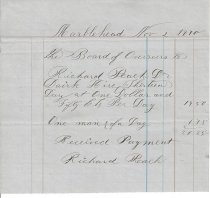 Marblehead Nov 1880
The Board of Overseers to
Richard Peach Dr
Hire Thirteen
Day at One Dollar and
Fifty Cts Per Day 19.50
One man ¾ of a Day
Received Payment
Richard Peach